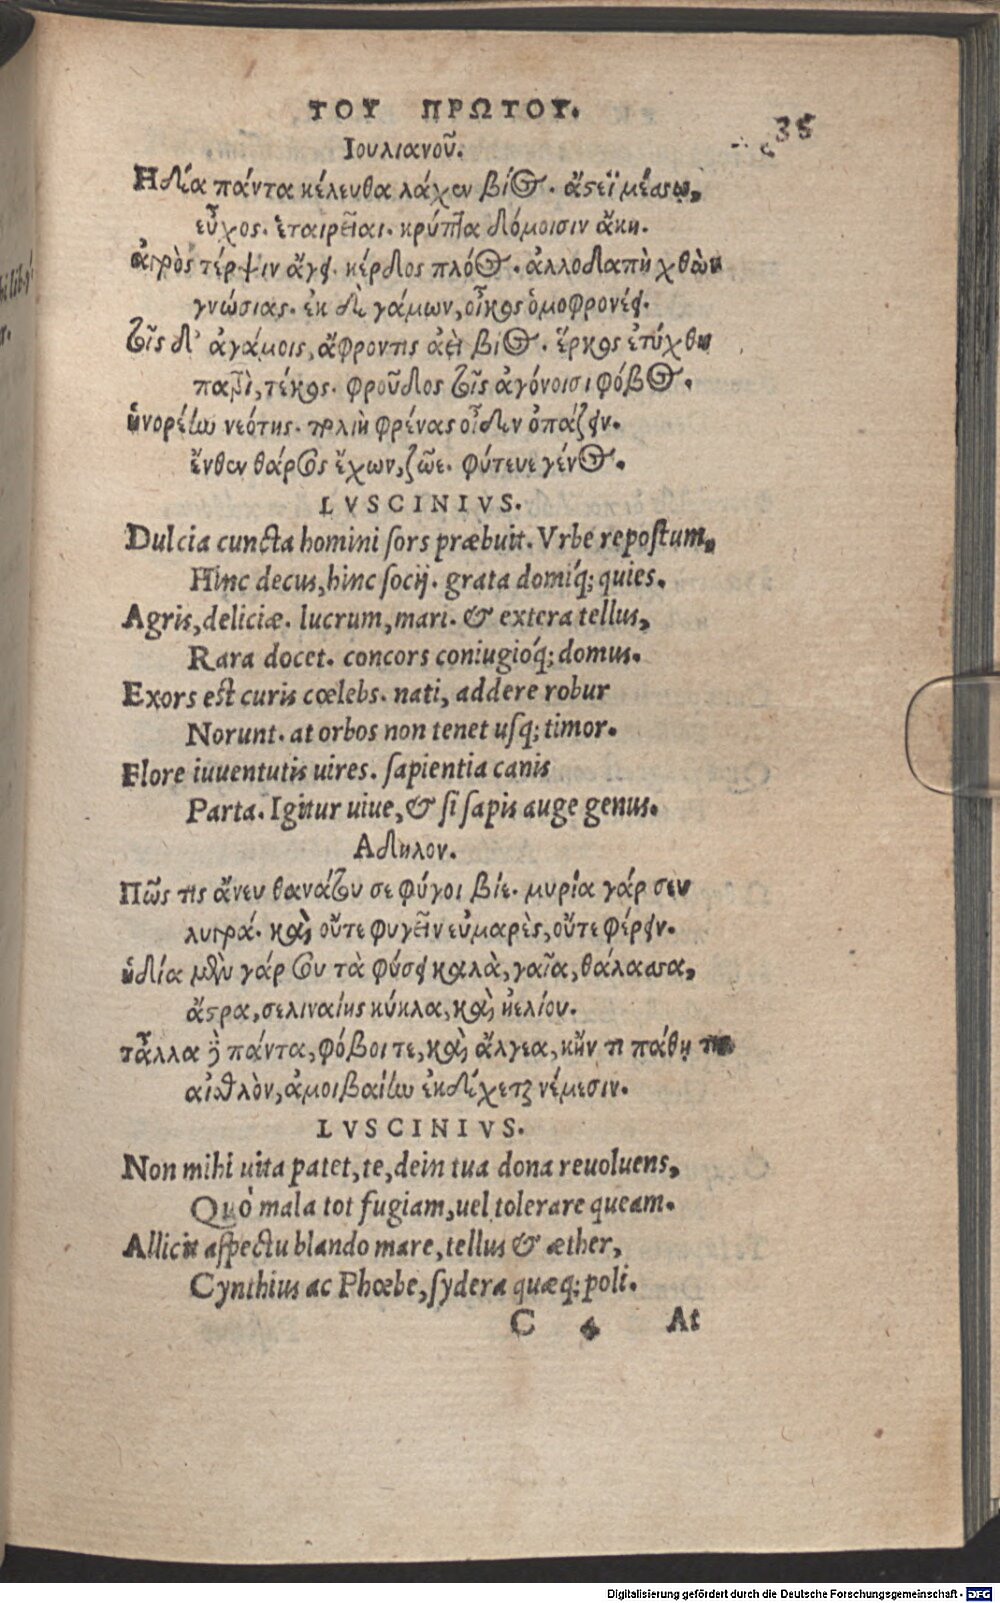 ΤΟΥ ΠΡΩΤΟΥ.
35
Ιουλιανοῦ.
Ηδέα πάντα κέλευθα λάχεν βίος. ἄστεϊ μέσσῳ,
εὖχος. ἑταιρεῖαι. κρύπτα δόμοισιν ἄχη.
ἀγρὸς τέρψιν ἄγει. κέρδος πλόος. ἀλλοδαπὴ χθὼν
γνώσιας. ἐκ δὲ γάμων, οἶκος ὁμοφρονέει.
τοῖς δ' ἀγάμοις, ἄφροντις ἀεὶ βίος. ἕρκος ἐτύχθη
πατρὶ, τέκος. φροῦδος τοῖς ἀγόνοισι φόβος.
ἠνορέην νεότης. πολιὴ φρένας οἶδεν ὀπάζειν.
ἔνθεν θάρσος ἔχων, ζῶε. φύτευε γένος.
LVSCINIVS.
Dulcia cuncta homini sors præbuit. Vrbe repostum,
Hinc decus, hinc socij. grata domiq́; quies.
Agris, deliciæ. lucrum, mari. & extera tellus,
Rara docet. concors coniugioq́; domus.
Exors est curis cœlebs. nati, addere robur
Norunt. at orbos non tenet usq; timor.
Flore iuuentutis uires. sapientia canis
Parta. Igitur uiue, & si sapis auge genus.
Αδηλον.
Πῶς τις ἄνευ θανάτου σε φύγοι βίε. μυρία γάρ σευ
λυγρά. καὶ οὔτε φυγεῖν εὐμαρὲς, οὔτε φέρειν.
ἡδέα μὲν γάρ σου τὰ φύσει καλὰ, γαῖα, θάλασσα,
ἄστρα, σεληναίης κύκλα, καὶ ἠελίου.
τἆλλα δὲ πάντα, φόβοι τε, καὶ ἄλγεα, κἤν τι πάθῃ τις
αἰσθλὸν, ἀμοιβαίην ἐκδέχεται νέμεσιν.
LVSCINIVS.
Non mihi uita patet, te, dein tua dona reuoluens,
Quò mala tot fugiam, uel tolerare queam.
Allicit aspectu blando mare, tellus & æther,
Cynthius ac Phœbe, sydera quæq; poli.
C 4 At
Digitalisierung gefördert durch die Deutsche Forschungsgemeinschaft - DFG